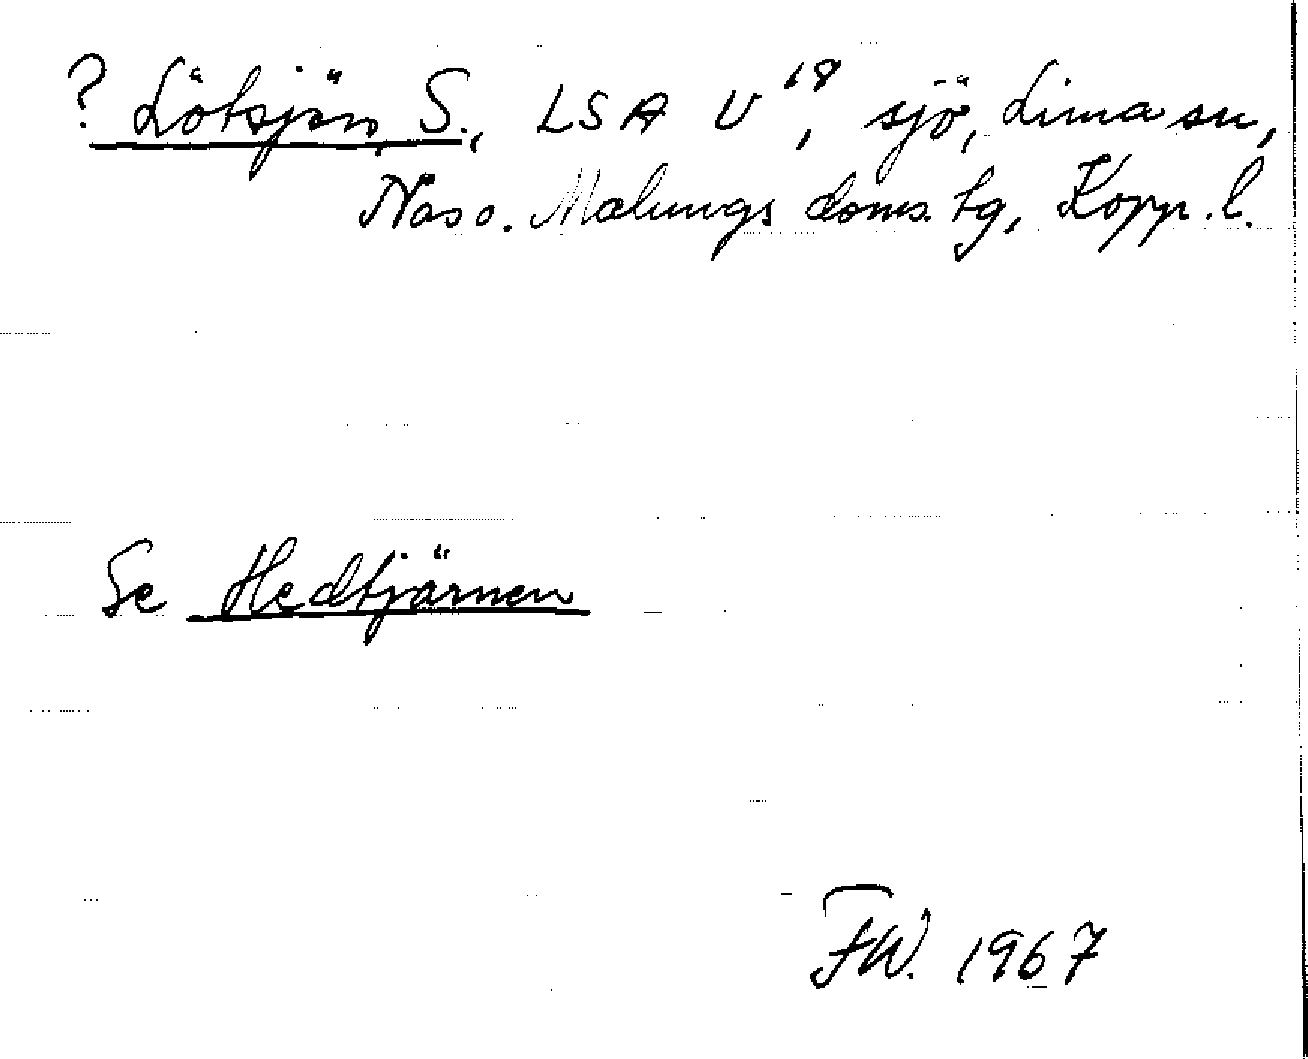 ? Lötsjön, S., LSA U 18, sjö, Lima sn,
Nås o. Malungs doms. tg, Kopp. l.
Se Hedtjärnen
FW. 1967